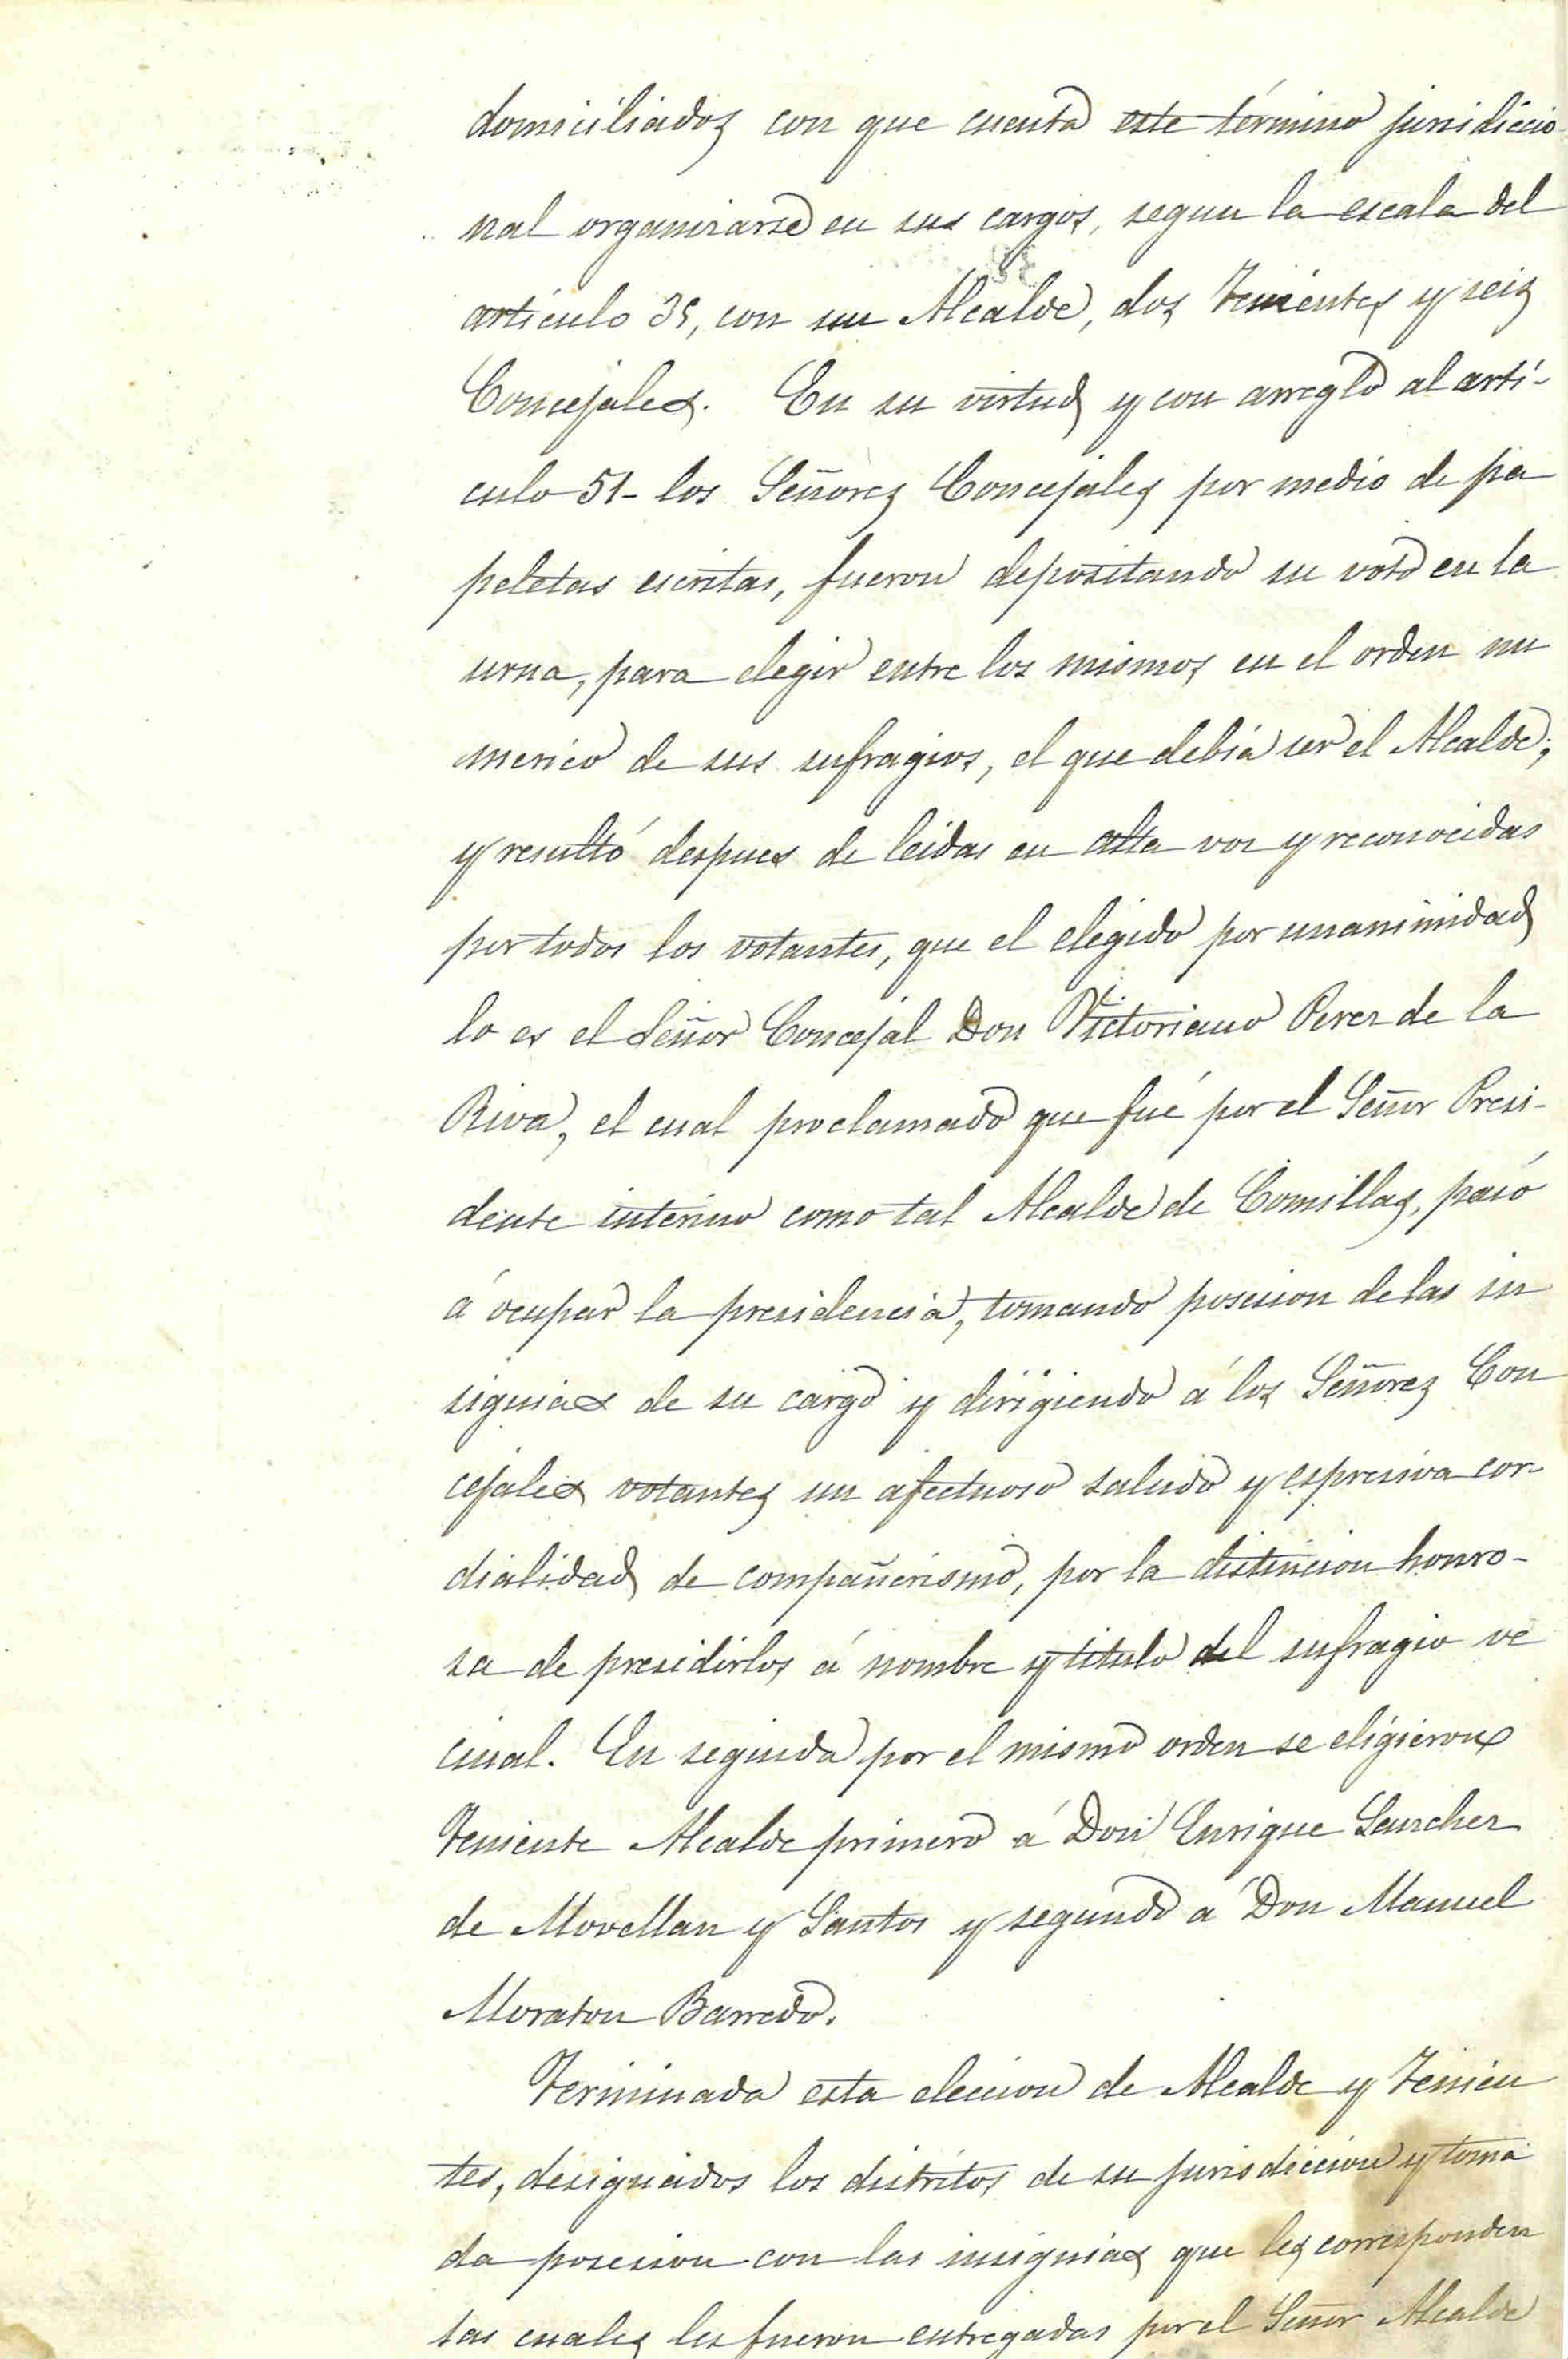 domiciliados con que cuenta este término jurisdiccio
nal organizarse en sus cargos, segun la escala del
artículo 35, con un Alcalde, dos Tenientes y seis
Concejales. En su virtud y con arreglo al artí-
culo 51- los Señores Concejales por medio de pa
peletas escritas, fueron depositando su voto en la
urna, para elegir entre los mismos en el orden nu
merico de sus sufragios, el que debia ser el Alcalde;
y resultó despues de leidas en alta voz y reconocidas
por todos los votantes, que el elegido por unanimidad
lo es el Señor Concejal Don Victoriano Perez de la
Riva, el cual proclamado que fué por el Señor Presi-
dente interino como tal Alcalde de Comillas, pasó
á ocupar la presidencia, tomando posesion de las in
signias de su cargo y dirigiendo á los Señores Con
cejales votantes un afectuoso saludo y espresiva cor-
dialidad de compañerismo, por la distincion honro-
sa de presidirlos á nombre y titulo del sufragio ve
cinal. En seguida por el mismo orden se eligieron
Teniente Alcalde primero á Don Enrique Sanchez
de Movellan y Santos y segundo á Don Manuel
Moraton Barredo.
Terminada esta eleccion de Alcalde y Tenien
tes, designados los distritos de su jurisdiccion y toma
da posesion con las insignias que les corresponden
las cuales les fueron entregadas por el Señor Alcalde